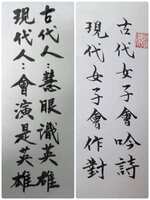 古代女子會吟詩
現代女子會作對
古代人:慧眼識英雄
現代人:會演是英雄